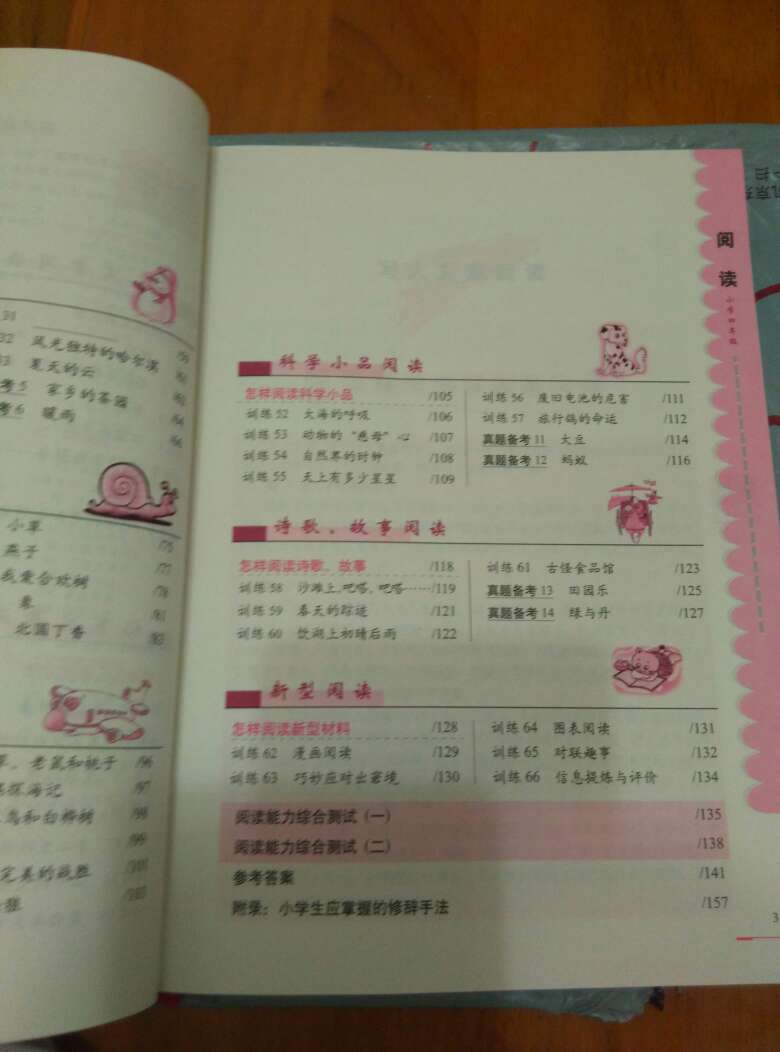 31
32 风光独特的哈尔滨 /59
33 夏天的云 /61
考5 家乡的茶园 /63
考6 暖雨 /64
/66
小草 /75
燕子 /77
我爱合欢树 /78
/81
北国丁香 /83
老鼠和桃子 /96
探海记 /97
鸟和白桦树 /98
/99
完美的战胜 /101
/103
阅读
小学四年级
科学小品阅读
怎样阅读科学小品 /105
训练52 大海的呼吸 /106
训练53 动物的“慈母”心 /107
训练54 自然界的时钟 /108
训练55 天上有多少星星 /109
训练56 废旧电池的危害 /111
训练57 旅行鸽的命运 /112
真题备考11 大豆 /114
真题备考12 蚂蚁 /116
诗歌、故事阅读
怎样阅读诗歌、故事 /118
训练58 沙滩上，吧嗒，吧嗒……/119
训练59 春天的踪迹 /121
训练60 饮湖上初晴后雨 /122
训练61 古怪食品馆 /123
真题备考13 田园乐 /125
真题备考14 绿与丹 /127
新型阅读
怎样阅读新型材料 /128
训练62 漫画阅读 /129
训练63 巧妙应对出窘境 /130
训练64 图表阅读 /131
训练65 对联趣事 /132
训练66 信息提炼与评价 /134
阅读能力综合测试（一） /135
阅读能力综合测试（二） /138
参考答案 /141
附录：小学生应掌握的修辞手法 /157
3